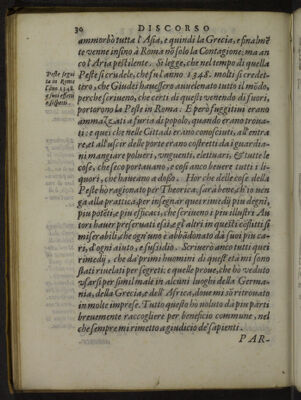 30 DISCORSO
ammorbò tutta l'Asia, e quindi la Grecia, e finalmẽ
te venne insino à Roma nõ solo la Contagione; ma an
co l'Aria pestilente. Si legge, che nel tempo di quella
Peste si crudele, che fu l'anno 1348. molti si credet-
tero, che Giudei havessero avvelenato tutto il mõdo,
perche scriveno, che certi di questi venendo di fuori,
portorono la Peste in Roma: E però fuggitivi erano
ammazzati a furia di popolo, quando erano trova-
ti: e quei che nelle Cittadi erano conosciuti, all'entra
re, et all'uscir delle porte erano costretti da i guardia-
ni mangiare polveri, unguenti, elettuari, & tutte le
cose, che seco portavano, e così anco bevere tutti i li-
quori, che haveano a dosso. Hor che delle cose della
Peste hò ragionato per Theorica, sarà bene, ch'io ven
ga alla prattica, per insegnar quei rimedij più degni,
più potẽti, e più efficaci, che scriveno i più illustri Au
tori haver preservati essi, e gl'altri in questi casi sti sì
miserabili, che ogn'uno è abbandonato da' suoi più ca-
ri, d'ogni aiuto, e sussidio. Scriverò anco tutti quei
rimedij, che da' primi huomini di quest'età mi sono
stati rivelati per segreti: e quelle prove, che hò veduto
usarsi per simil male in alcuni luoghi della Germa-
nia, della Grecia, e dell'Africa, dove mi sò ritrovato
in molte imprese. Tutto questo hò voluto da più parti
brevemente raccogliere per beneficio commune, nel
che sempre mi rimetto a giudicio de' sapienti.
PAR-
Peste segui
ta in Roma
l'ãno 1348.
& suoi effetti
e sospetti.